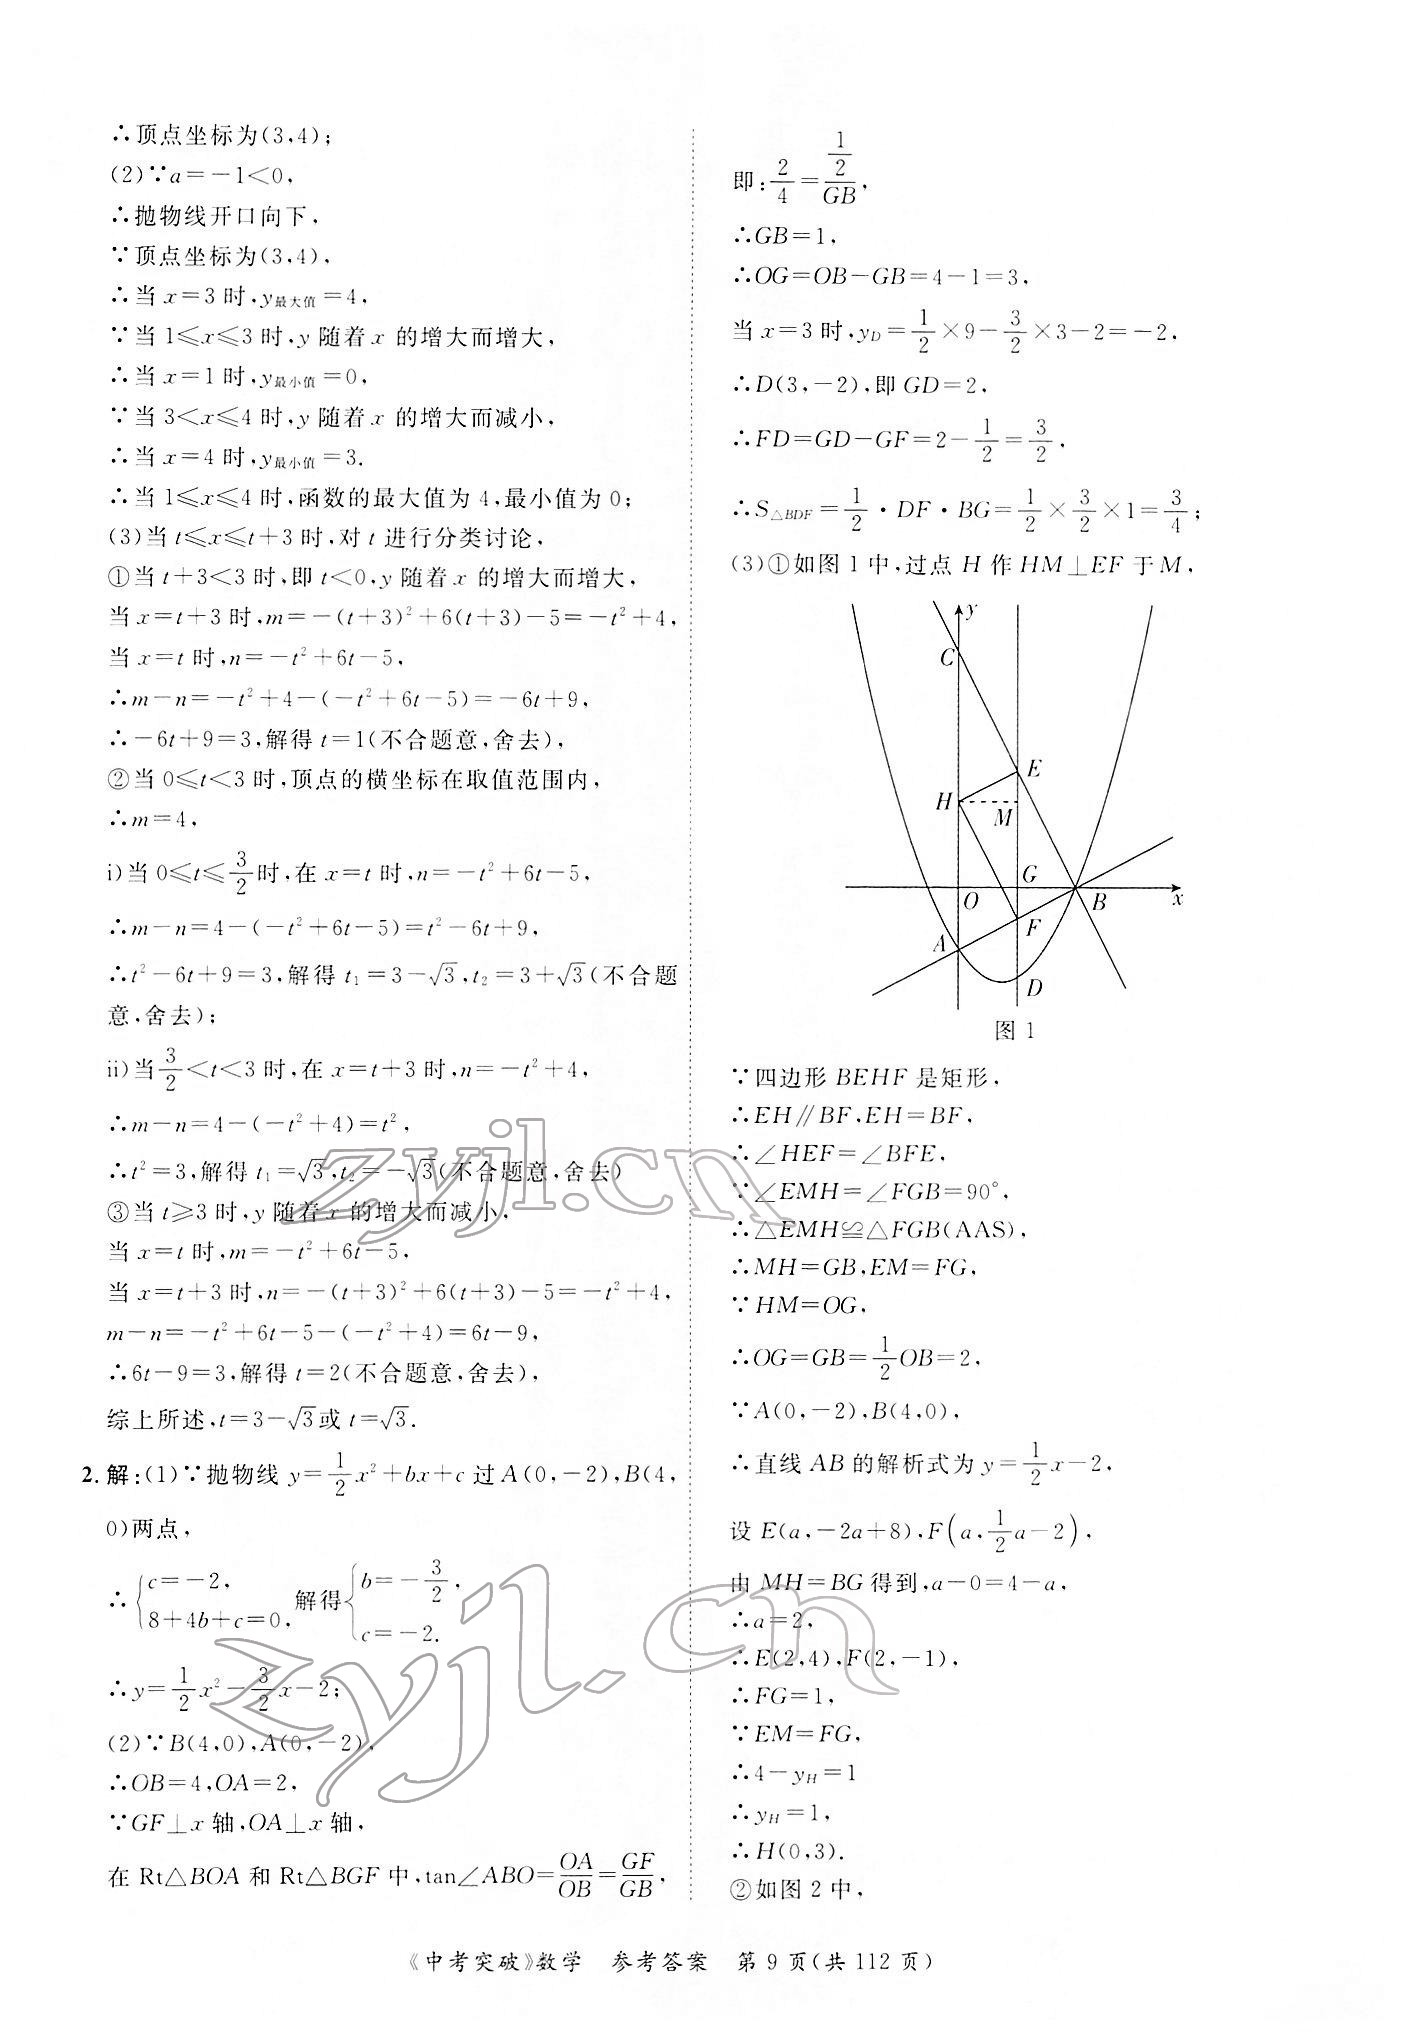 ∴顶点坐标为(3,4);
(2)∵a=-1<0,
∴抛物线开口向下,
∵顶点坐标为(3,4),
∴当 x=3 时,y最大值=4,
∵当 1≤x≤3 时,y 随着 x 的增大而增大,
∴当 x=1 时,y最小值=0,
∵当 3<x≤4 时,y 随着 x 的增大而减小,
∴当 x=4 时,y最小值=3.
∴当 1≤x≤4 时,函数的最大值为 4,最小值为 0;
(3)当 t≤x≤t+3 时,对 t 进行分类讨论,
①当 t+3<3 时,即 t<0,y 随着 x 的增大而增大,
当 x=t+3 时,m=-(t+3)²+6(t+3)-5=-t²+4,
当 x=t 时,n=-t²+6t-5,
∴m-n=-t²+4-(-t²+6t-5)=-6t+9,
∴-6t+9=3,解得 t=1(不合题意,舍去),
②当 0≤t<3 时,顶点的横坐标在取值范围内,
∴m=4,
i)当 0≤t≤3/2时,在 x=t 时,n=-t²+6t-5,
∴m-n=4-(-t²+6t-5)=t²-6t+9,
∴t²-6t+9=3,解得 t₁=3-√3,t₂=3+√3(不合题
意,舍去);
ii)当3/2<t<3 时,在 x=t+3 时,n=-t²+4,
∴m-n=4-(-t²+4)=t²,
∴t²=3,解得 t₁=√3,t₂=-√3(不合题意,舍去)
③当 t≥3 时,y 随着 x 的增大而减小,
当 x=t 时,m=-t²+6t-5,
当 x=t+3 时,n=-(t+3)²+6(t+3)-5=-t²+4,
m-n=-t²+6t-5-(-t²+4)=6t-9,
∴6t-9=3,解得 t=2(不合题意,舍去),
综上所述,t=3-√3或 t=√3.
2.解:(1)∵抛物线 y=1/2x²+bx+c 过 A(0,-2),B(4,
0)两点,
∴{c=-2, 8+4b+c=0, 解得{b=-3/2, c=-2.
∴y=1/2x²-3/2x-2;
(2)∵B(4,0),A(0,-2),
∴OB=4,OA=2,
∵GF⊥x 轴,OA⊥x 轴,
在 Rt△BOA 和 Rt△BGF 中,tan∠ABO=OA/OB=GF/GB,
即:2/4=(1/2)/GB,
∴GB=1,
∴OG=OB-GB=4-1=3,
当 x=3 时,y_D=1/2×9-3/2×3-2=-2,
∴D(3,-2),即 GD=2,
∴FD=GD-GF=2-1/2=3/2,
∴S△BDF=1/2·DF·BG=1/2×3/2×1=3/4;
(3)①如图 1 中,过点 H 作 HM⊥EF 于 M,
y
C
E
H
M
G
O
B
x
A
F
D
图 1
∵四边形 BEHF 是矩形,
∴EH∥BF,EH=BF,
∴∠HEF=∠BFE,
∵∠EMH=∠FGB=90°,
∴△EMH≌△FGB(AAS),
∴MH=GB,EM=FG,
∵HM=OG,
∴OG=GB=1/2OB=2,
∵A(0,-2),B(4,0),
∴直线 AB 的解析式为 y=1/2x-2,
设 E(a,-2a+8),F(a,1/2a-2),
由 MH=BG 得到,a-0=4-a,
∴a=2,
∴E(2,4),F(2,-1),
∴FG=1,
∵EM=FG,
∴4-y_H=1
∴y_H=1,
∴H(0,3).
②如图 2 中,
《中考突破》数学 参考答案 第 9 页(共 112 页)
zyjl.cn
zyjl.cn